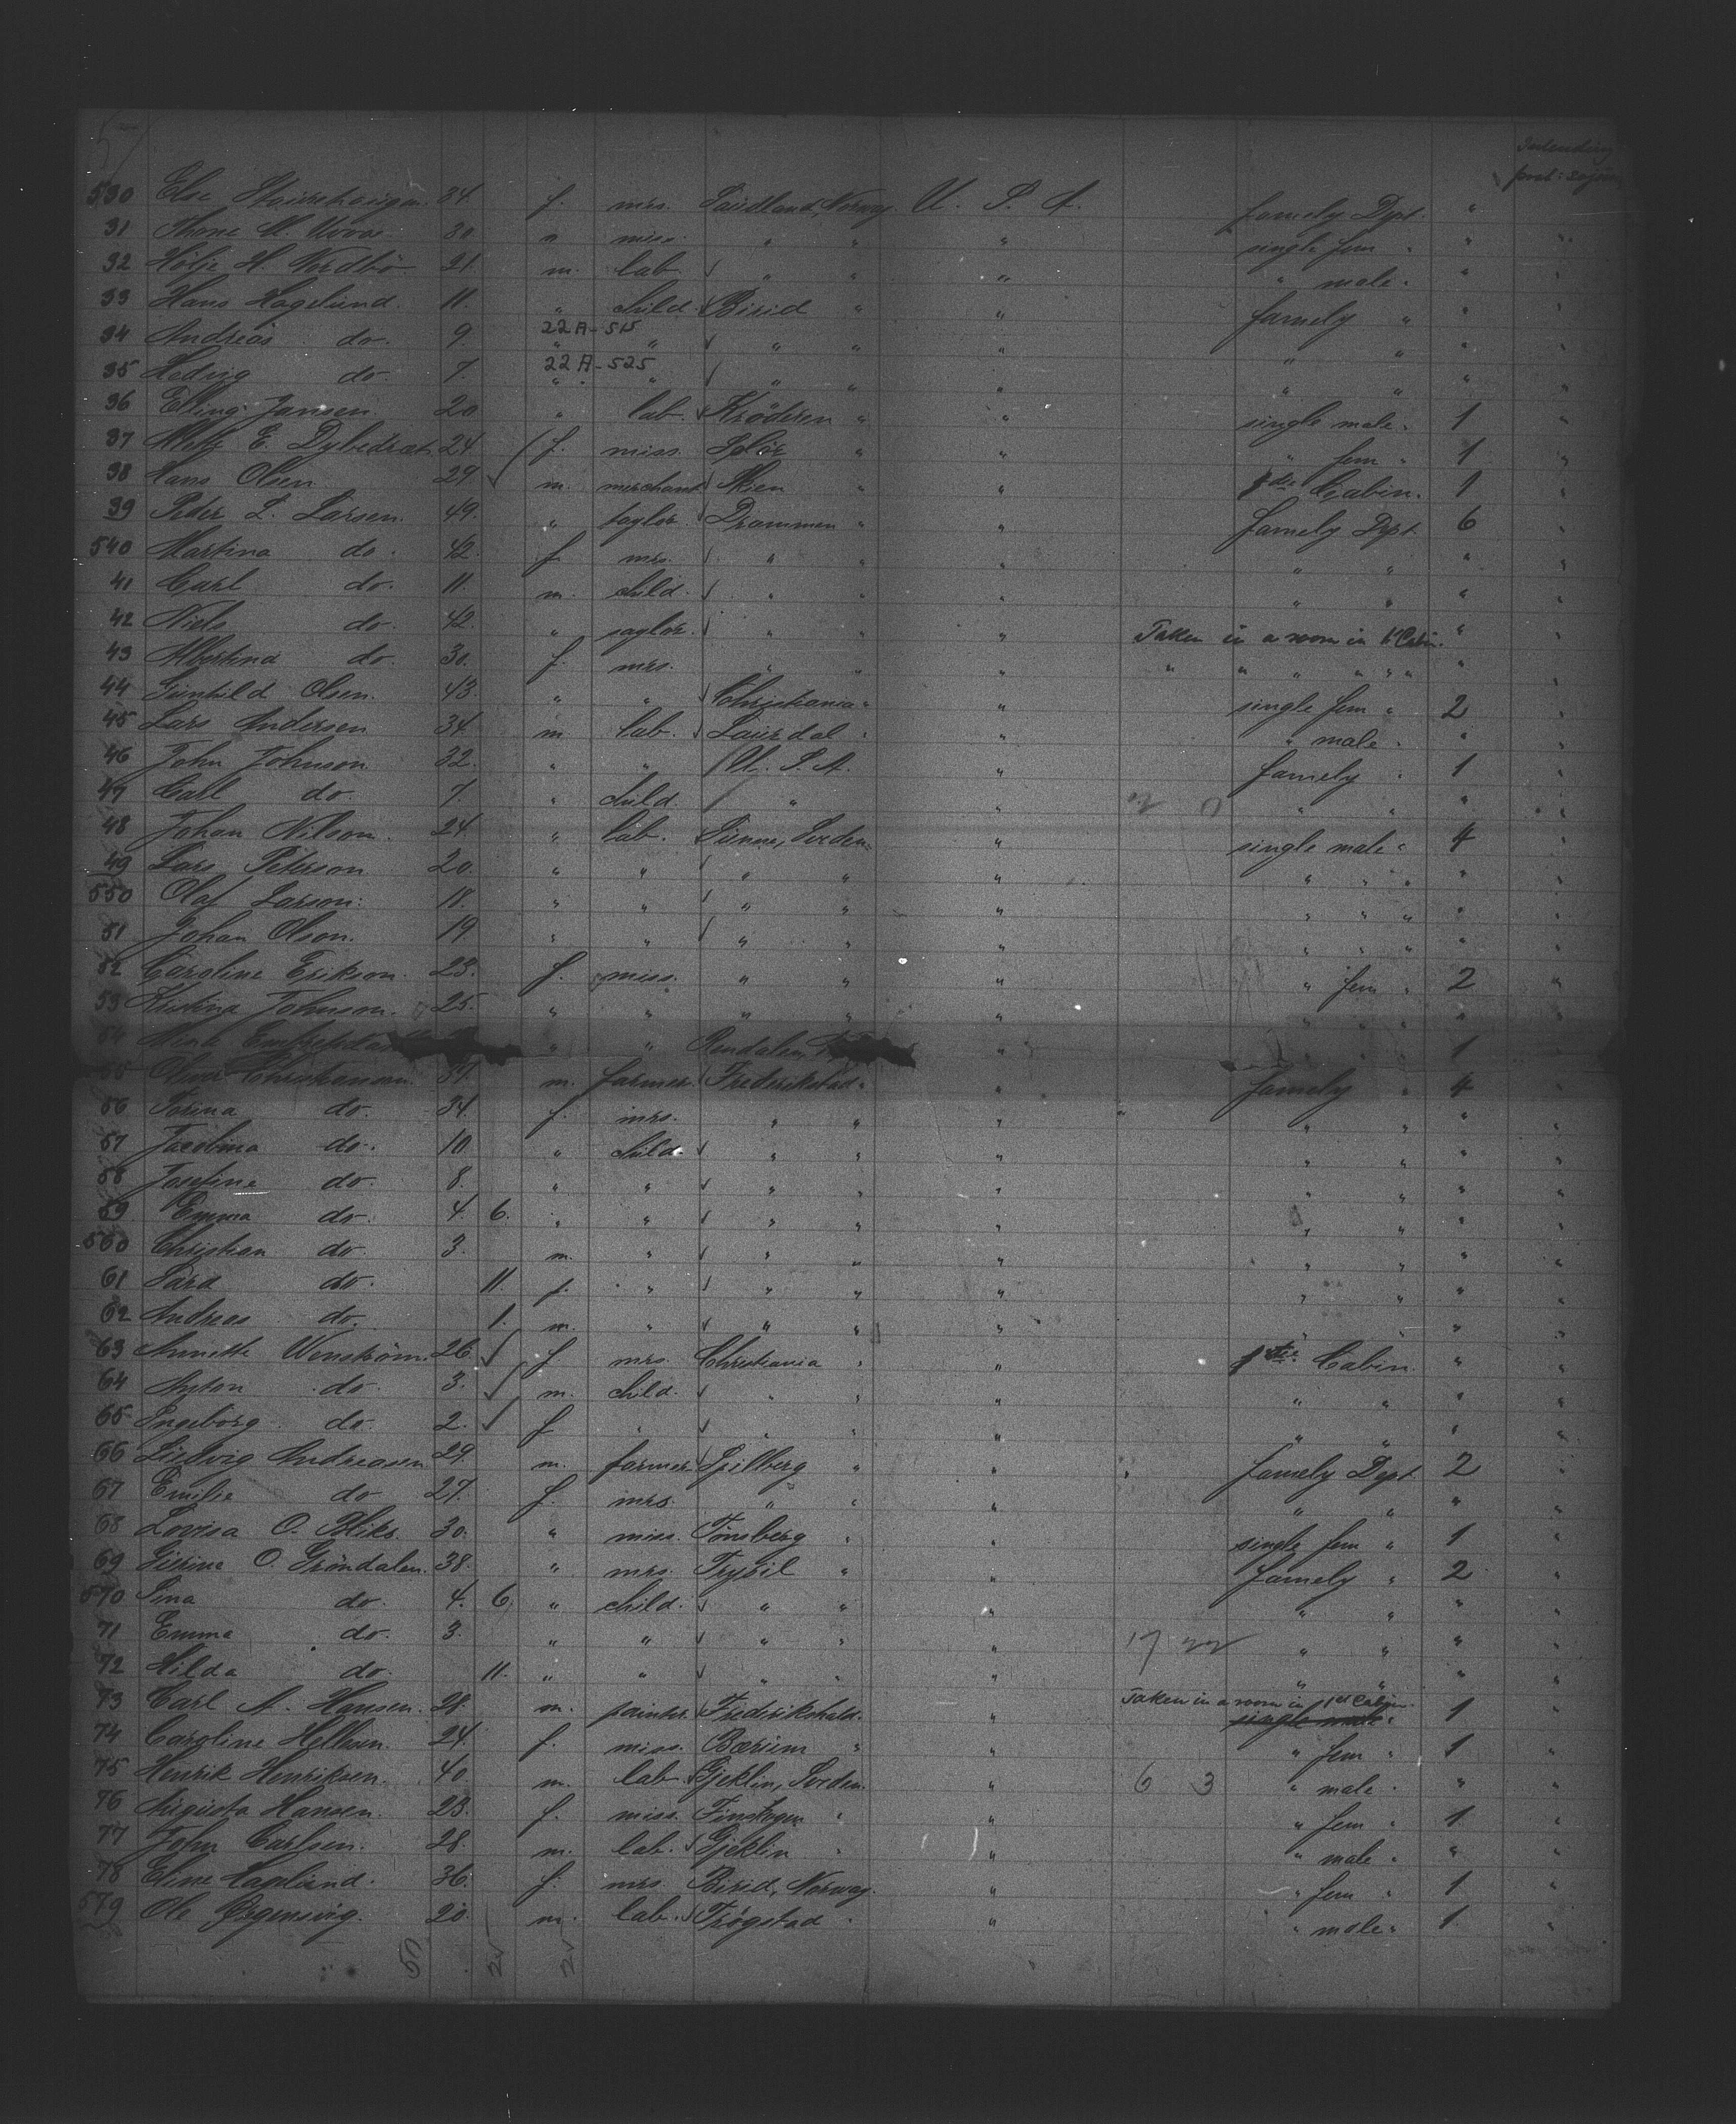 Intending
prot: sojourn
530 Else 34. f. mrs. Sandland, Norway. U. S. A. famely Dpt. "
31 Thone 30. " miss. " " " single fem " " "
32 Hölje H. Nordbö 21. m. lab. " " " " male " " "
33 Hans Hagelund. 11. " child. Birid " " famely " " "
22A-515
34 Andreas do. 9. " " " " " " " " "
22A-525
35 Hedvig do. 7. " " " " " " " " "
36 Elling Jansen. 20. " lab. Kröderen " " single male " 1 "
37 E. Dybedræt. 24. f. miss. Solör " " " fem " 1 "
38 Hans Olsen 29. m. merchant Skien " " Cabin. 1 "
39 Peder L. Larsen. 49. " taylor. Drammen " " famely Dpt. 6 "
540 Martina do. 42. f. mrs. " " " " " " "
41 Carl do. 11. m. child. " " " " " " "
42 Niels do. 42. " saylor. " " " Taken in a room in 1st Cabin. " "
43 Albertina do. 30. f. mrs. " " " " " " " " " "
44 Gunhild Olsen. 43. " " Christiania " " single fem " 2 "
45 Lars Andersen 34. m. lab. Laurdal " " " male " " "
46 John Johnson 32. " " U. S. A. " famely " 1 "
47 Carl do. 7. " child. " " " " " "
48 Johan Nilson. 24. " lab. Sunne, Sveden " single male " 4 "
49 Lars Peterson 20. " " " " " " " " " "
550 Olaf Larson. 18. " " " " " " " " " "
51 Johan Olson. 19. " " " " " " " " " "
52 Caroline Erikson. 23. f. miss. " " " " fem " 2 "
53 Kristina Johnson. 25. " " " " " " " " " "
54 " " Rendalen, " " " " 1 "
55 Christiansen. 37. m. farmer. Frederikstad " " famely " 4 "
56 Torina do. 34. f. mrs. " " " " " " "
57 Jacobina do. 10 " child. " " " " " " "
58 Josefine do. 8. " " " " " " " " "
59 Emma do. 4. 6. " " " " " " " " "
560 Christian do. 3. m. " " " " " " " "
61 Sara do. 11. f. " " " " " " " "
62 Andreas do. 1. m. " " " " " " " "
63 Annette Wenström. 26. f. mrs. Christiania " " 1ste Cabin. " "
64 Anton do. 3. m. child. " " " " " " "
65 Ingeborg do. 2. f. " " " " " " " "
66 Ludvig Andreasen 29. m. farmer. Spilberg " " famely Dept. 2 "
67 Emilie do. 27. f. mrs. " " " " " " "
68 Lovisa O. Bliks. 30. " miss. Tönsberg " " single fem " 1 "
69 O. Gröndalen. 38. " mrs. Trysil " " famely " 2 "
570 Sina do. 4. 6. " child. " " " " " " "
71 Emma do. 3. " " " " " 17 22 " " " "
72 Hilda do. 11. " " " " " " " " "
Taken in a room in 1st Cabin.
73 Carl A. Hansen. 28. m. painter. Frederikshald. " single male " 1 "
74 Caroline 24. f. miss. Bærum " " " fem " 1 "
75 Henrik Henriksen. 40. m. lab. Gjeklin, Sveden. " 6 3 " male " " "
76 Augusta Hansen. 23. f. miss. Finskogen " " " fem " 1 "
77 John Carlsen. 28. m. lab. Gjeklin " " " male " " "
78 Eline Hagelund. 36. f. mrs. Birid, Norway. " " fem " 1 "
579 Ole 20. m. lab. Trögstad " " " male " 1 "